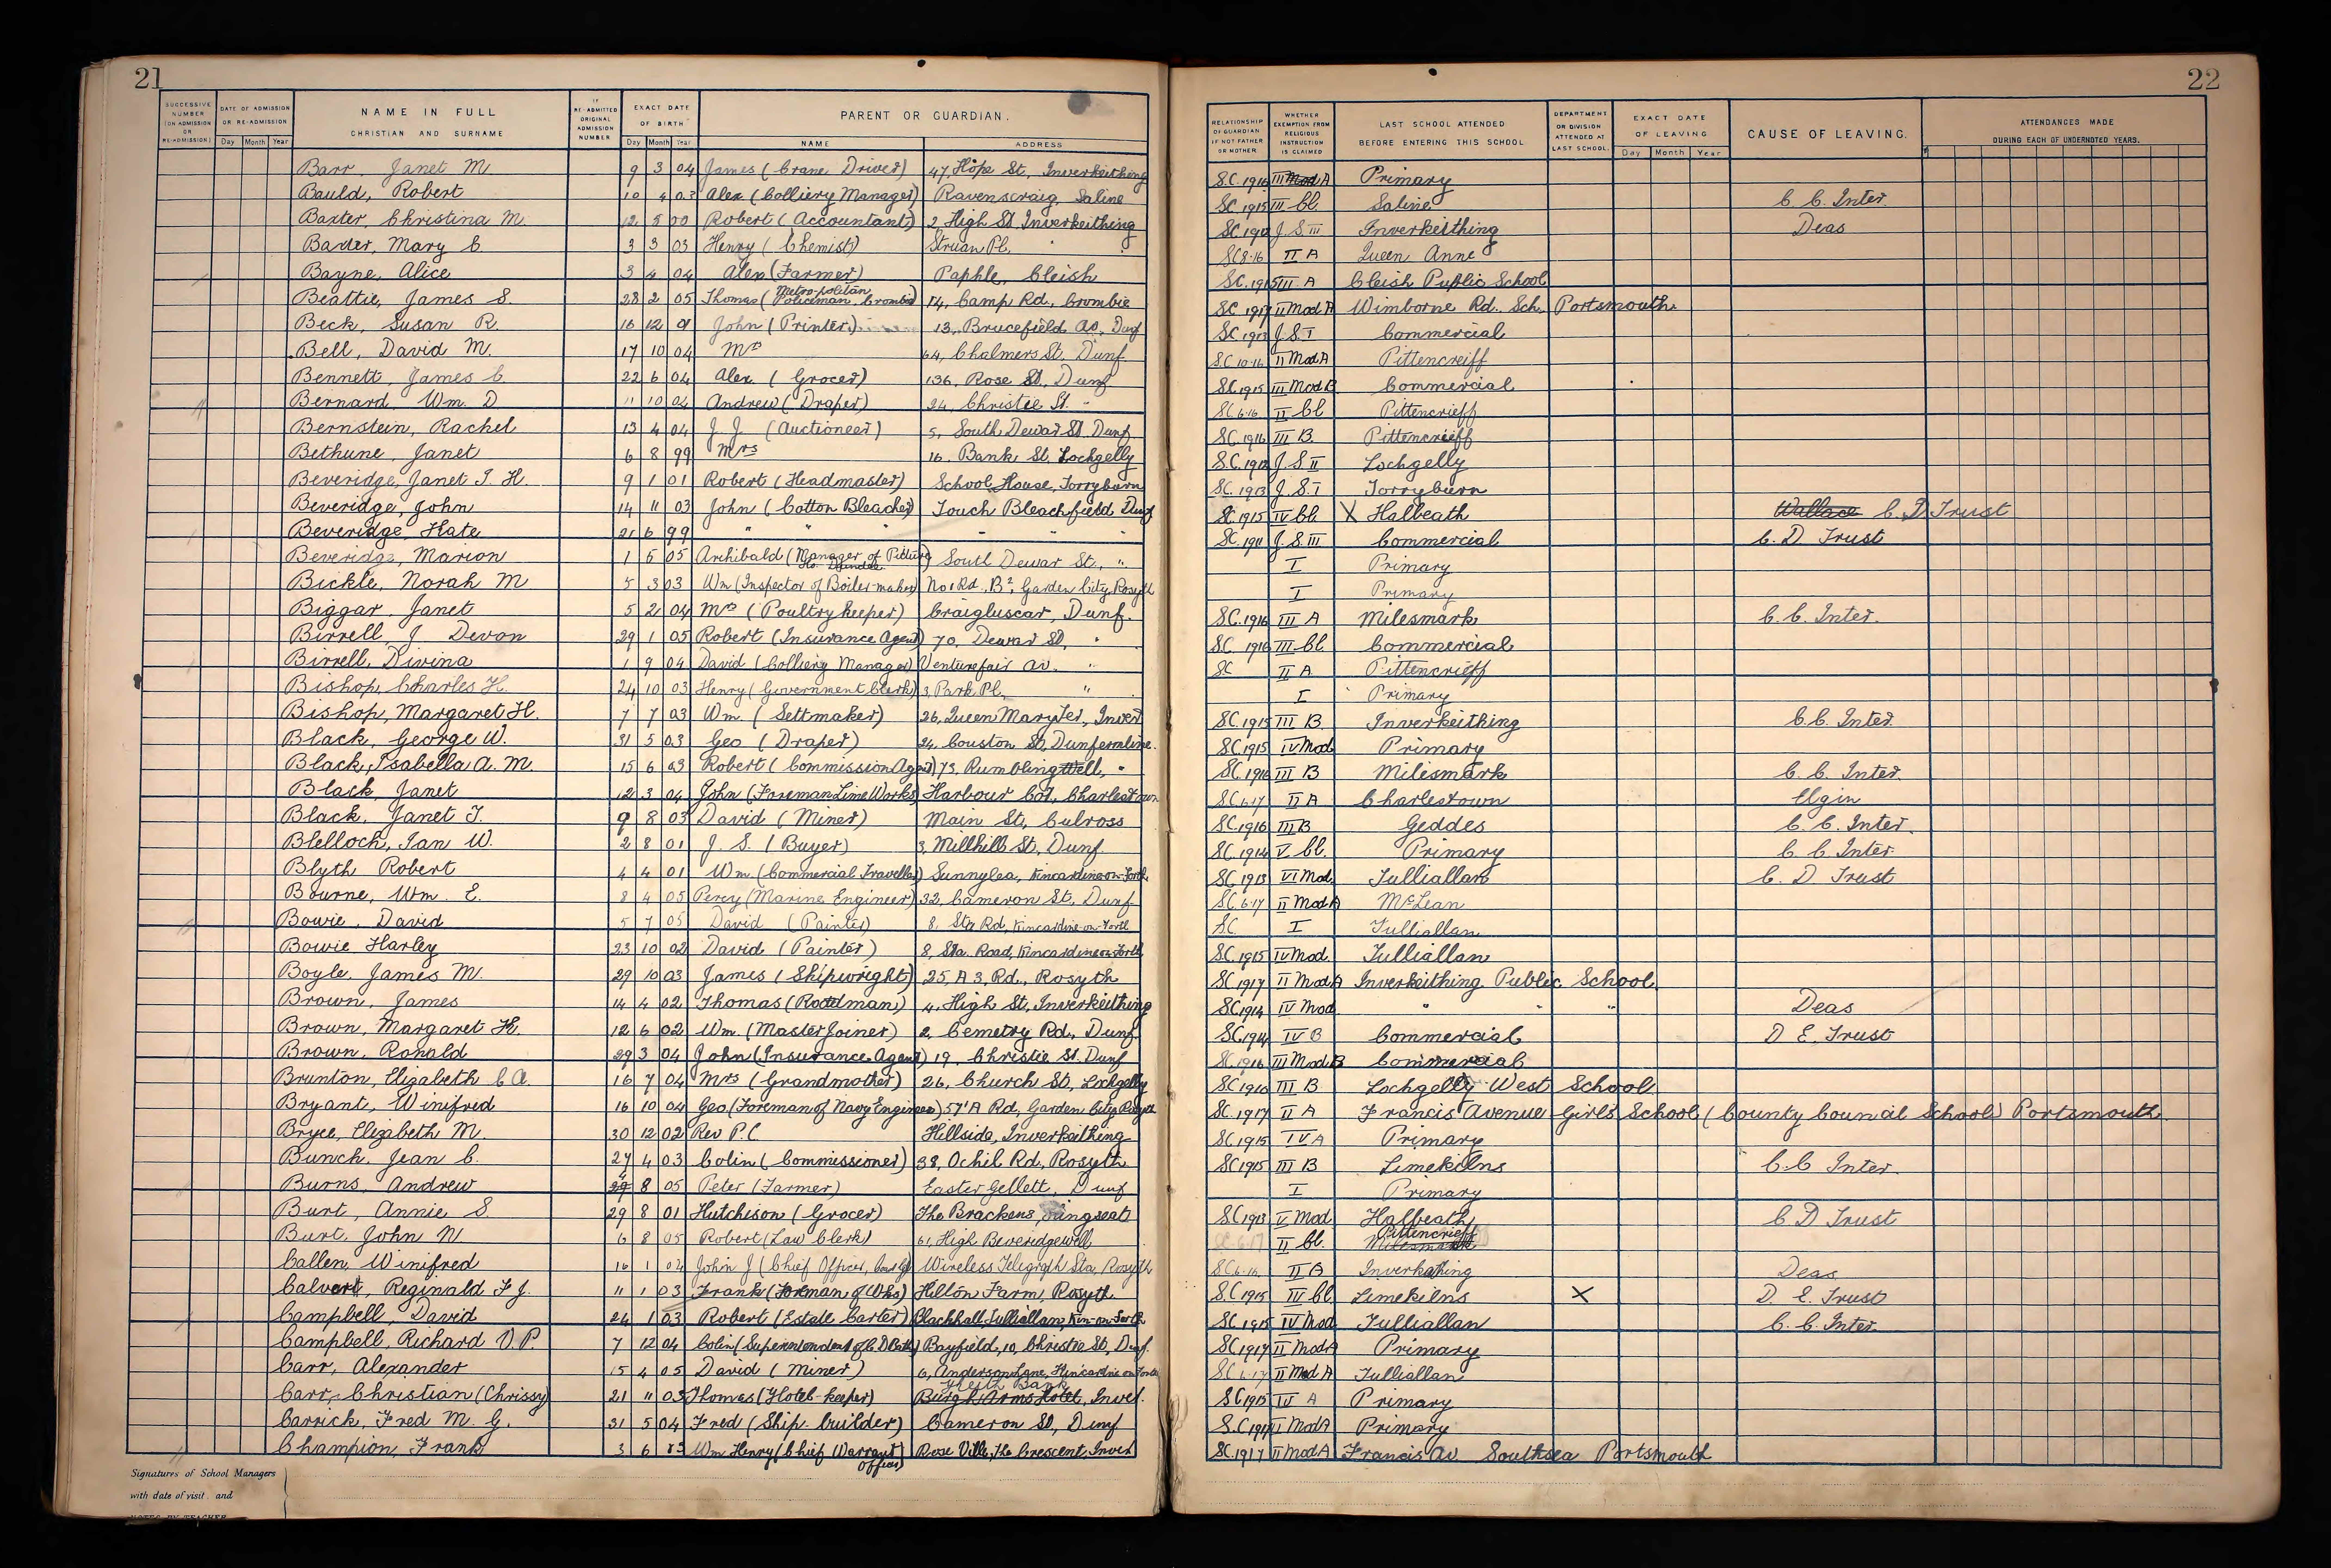 21
SUCCESSIVE NUMBER (ON ADMISSION OR RE-ADMISSION) DATE OF ADMISSION OR RE-ADMISSION Day Month Year NAME IN FULL CHRISTIAN AND SURNAME IF RE-ADMITTED ORIGINAL ADMISSION NUMBER EXACT DATE OF BIRTH Day Month Year PARENT OR GUARDIAN. NAME ADDRESS
Barr, Janet M. 9 3 04 James (Crane Driver) 47, Hope St, Inverkeithing
Bauld, Robert 10 4 03 Alex (Colliery Manager) Ravenscraig, Saline
Baxter, Christina M. 12 5 00 Robert (Accountant) 2, High St Inverkeithing
Baxter, Mary C. 3 3 03 Henry (Chemist) Struan Pl. "
Bayne, Alice 3 4 04 Alex (Farmer) Paphle, Cleish
Beattie, James S. 28 2 05 Thomas (Metropolitan Policeman, Crombie) 14, Camp Rd, Crombie
Beck, Susan R. 16 12 01 John (Printer) 13, Brucefield Av, Dunf
Bell, David M. 17 10 04 Mrs 64, Chalmers St, Dunf.
Bennett, James C. 22 6 04 Alex. (Grocer) 136, Rose St, Dunf
Bernard, Wm. D 11 10 04 Andrew (Draper) 24, Christie St. "
Bernstein, Rachel 13 4 04 J. J. (Auctioneer) 5, South Dewar St Dunf
Bethune, Janet 6 8 99 Mrs 16, Bank St. Lochgelly
Beveridge, Janet I. H. 9 1 01 Robert (Headmaster) School House, Torryburn
Beveridge, John 14 11 03 John (Cotton Bleacher) Touch Bleachfield Dunf
Beveridge, Kate 21 6 99 " " " " " "
Beveridge, Marion 1 5 05 Archibald (Manager of Picture Ho. ) South Dewar St, "
Bickle, Norah M 5 3 03 Wm (Inspector of Boiler-maker) No 1 Rd. B2, Garden City, Rosyth
Biggar, Janet 5 2 04 Mrs (Poultry keeper) Craigluscar, Dunf.
Birrell, J Devon 29 1 05 Robert (Insurance Agent) 70, Dewar St, "
Birrell, Divina 1 9 04 David (Colliery Manager) Venturefair Av. "
Bishop, Charles H. 24 10 03 Henry (Government Clerk) 3, Park Pl. "
Bishop, Margaret H. 7 7 03 Wm. (Settmaker) 26, Queen Mary Ter, Inver
Black, George W. 31 5 03 Geo (Draper) 24, Couston St, Dunfermline.
Black, Isabella A. M. 15 6 03 Robert (Commission Agent) 73, Rumblingwell, "
Black, Janet 12 3 04 John (Foreman Lime Works) Harbour Cot, Charlestown
Black, Janet T. 9 8 03 David (Miner) Main St, Culross
Blelloch, Ian W. 2 8 01 J. S. (Buyer) 3, Millhill St, Dunf.
Blyth Robert 4 4 01 Wm. (Commercial Traveller) Sunnylea, Kincardine-on-Forth
Bourne, Wm. E. 8 4 05 Percy (Marine Engineer) 32, Cameron St, Dunf
Bowie, David 5 7 05 David (Painter) 8, Sta Rd, Kincardine-on-Forth
Bowie Harley 23 10 02 David (Painter) 8, Sta. Road, Kincardine-on-Forth
Boyle, James M. 29 10 03 James (Shipwright) 25, A 3, Rd, Rosyth
Brown, James 14 4 02 Thomas (Roadman) 4, High St, Inverkeithing
Brown, Margaret H. 12 6 02 Wm. (Master Joiner) 2, Cemetry Rd, Dunf.
Brown, Ronald 29 3 04 John (Insurance Agent) 19, Christie St. Dunf
Brunton, Elizabeth C A. 16 7 04 Mrs (Grandmother) 26, Church St, Lochgelly
Bryant, Winifred 16 10 04 Geo. (Foreman of Navy Engineer) 57'A Rd, Garden City, Rosyth
Bryce, Elizabeth M. 30 12 02 Rev P. C Hillside, Inverkeithing
Bunch, Jean C. 27 4 03 Colin (Commissioner) 38, Ochil Rd, Rosyth
Burns, Andrew 8 05 Peter (Farmer) Easter Gellett, Dunf
Burt, Annie S. 29 8 01 Hutchison (Grocer) The Brackens, Kingseat
Burt, John N 6 8 05 Robert (Law Clerk) 61, High Beveridgewell
Callen, Winifred 16 1 04 John J (Chief Officer, Coast G) Wireless Telegraph Sta, Rosyth
Calvert, Reginald F J. 11 1 03 Frank (Foreman of Wks) Hilton Farm, Rosyth
Campbell, David 24 1 03 Robert (Estate Carter) Blackhall, Tulliallan, Kin-on-Forth
Campbell, Richard V. P. 7 12 04 Colin (Superintendent of C D Baths) Bayfield, 10, Christie St, Dunf.
Carr, Alexander 15 4 05 David (Miner) 6, Anderson Lane, Kincardine on Forth
Carr, Christian (Chrissy) 21 11 03 Thomas (Hotel-keeper) Bank Burgh Arms Hotel, Inver.
Carrick, Fred M. G. 31 5 04 Fred (Ship-builder) Cameron St, Dunf
Champion, Frank 3 6 03 Wm Henry (Chief Warrant Officer) Rose Ville, The Crescent, Inver
Signatures of School Managers
with date of visit, and
NOTES BY TEACHER
22
RELATIONSHIP OF GUARDIAN IF NOT FATHER OR MOTHER. WHETHER EXEMPTION FROM RELIGIOUS INSTRUCTION IS CLAIMED LAST SCHOOL ATTENDED BEFORE ENTERING THIS SCHOOL DEPARTMENT OR DIVISION ATTENDED AT LAST SCHOOL. EXACT DATE OF LEAVING Day Month Year CAUSE OF LEAVING. ATTENDANCES MADE DURING EACH OF UNDERNOTED YEARS.
S.C. 1916 III Mod A Primary
SC. 1915 III Cl. Saline C. C. Inter.
SC. 1912 J. S. III Inverkeithing Deas
SC 8.16 II A Queen Anne
SC. 1915 III A Cleish Public School
SC. 1917 II Mod A Wimborne Rd. Sch. Portsmouth
SC. 1913 J. S. I Commercial
S.C. 10.16 II Mod A Pittencreiff
SC. 1915 III Mod B Commercial
SC. 6.16 II Cl Pittencrieff
SC. 1916 III B. Pittencrieff
S.C. 1912 J. S II Lochgelly
SC. 1913 J. S. I Torryburn
SC. 1915 IV Cl. X Halbeath Wallace C. D Trust
SC. 1911 J. S. III Commercial C. D. Trust
I Primary
I Primary
SC. 1916 III A Milesmark C. C. Inter.
SC. 1916 III Cl. Commercial
SC II A Pittencrieff
I Primary
SC. 1915 III B. Inverkeithing C. C. Inter.
SC. 1915 IV Mod Primary
SC. 1916 III B Milesmark C. C. Inter.
SC. 6.17 II A Charlestown Elgin
SC. 1916 III B Geddes C. C. Inter.
SC. 1914 V. Cl. Primary C. C. Inter.
SC. 1913 VI Mod. Tulliallan C. D Trust
SC. 6.17 II Mod A McLean
SC. I Tulliallan
SC. 1915 IV Mod. Tulliallan
SC. 1917 II Mod A Inverkeithing Public School
SC. 1914 IV Mod. " " " Deas
SC. 1914 IV B Commercial D E. Trust
SC. 1916 III Mod B Commercial
SC. 1916 III B Lochgelly West School
SC. 1917 II A Francis Avenue Girls School (County Council School) Portsmouth.
SC. 1915 IV A Primary
SC 1915 III B Limekilns C. C Inter.
I Primary
SC 1913 V Mod Halbeath C D Trust
SC. 6.17 II Cl. Pittencrieff Milesmark
SC. 6.16 II B Inverkeithing Deas
SC 1915 III Cl Limekilns X D. E. Trust
SC. 1915 IV Mod Tulliallan C. C. Inter.
SC. 1917 II Mod A Primary
SC. 6.17 II Mod A Tulliallan
SC 1915 IV A Primary
S.C. 1917 II Mod A Primary
SC. 1917 II Mod A Francis Av Southsea Portsmouth